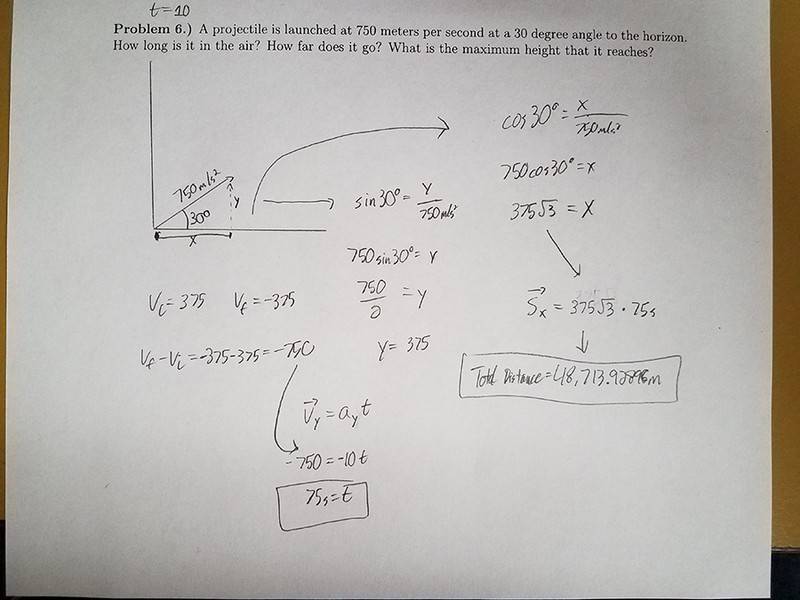 t=10
Problem 6.) A projectile is launched at 750 meters per second at a 30 degree angle to the horizon.
How long is it in the air? How far does it go? What is the maximum height that it reaches?
750m/s²
30°
y
x
sin30°= y/750m/s²
750sin30°= y
750/2 = y
y= 375
cos30°= x/750m/s²
750cos30°=x
375√3 = x
S⃗x = 375√3 · 75s
Total Distance=48,713.92896m
Vi=375 Vf=-375
Vf-Vi=-375-375=-750
V⃗y=ayt
-750=-10t
75s=t